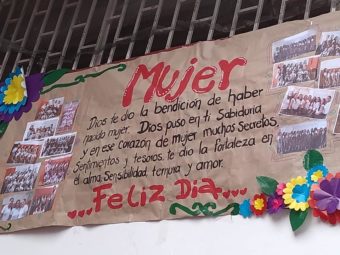 Mujer
Dios te dio la bendición de haber
nacido mujer. Dios puso en ti Sabiduria
y en ese corazón de mujer muchos Secretos,
Sentimientos y tesoros. te dio la fortaleza en
el alma, Sensibilidad, ternura y amor.
...Feliz Dia...